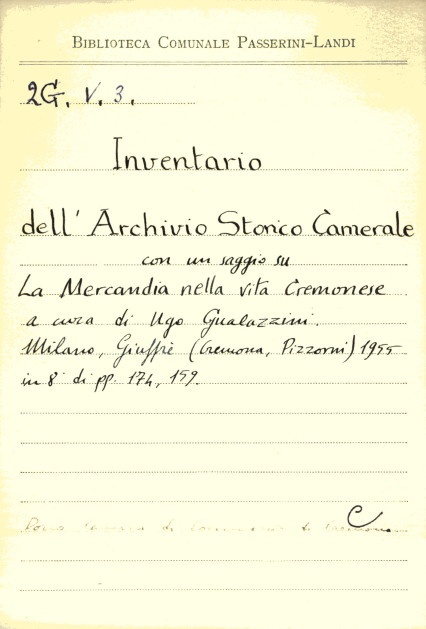 BIBLIOTECA COMUNALE PASSERINI-LANDI
2G. V. 3.
Inventario
dell' Archivio Storico Camerale
con un saggio su
La Mercandia nella vita Cremonese
a cura di Ugo Gualazzini.
Milano, Giuffrè (Cremona, Pizzorni) 1955
in 8° di pp. 174, 159.
C
Dono Camera di Commercio di Cremona